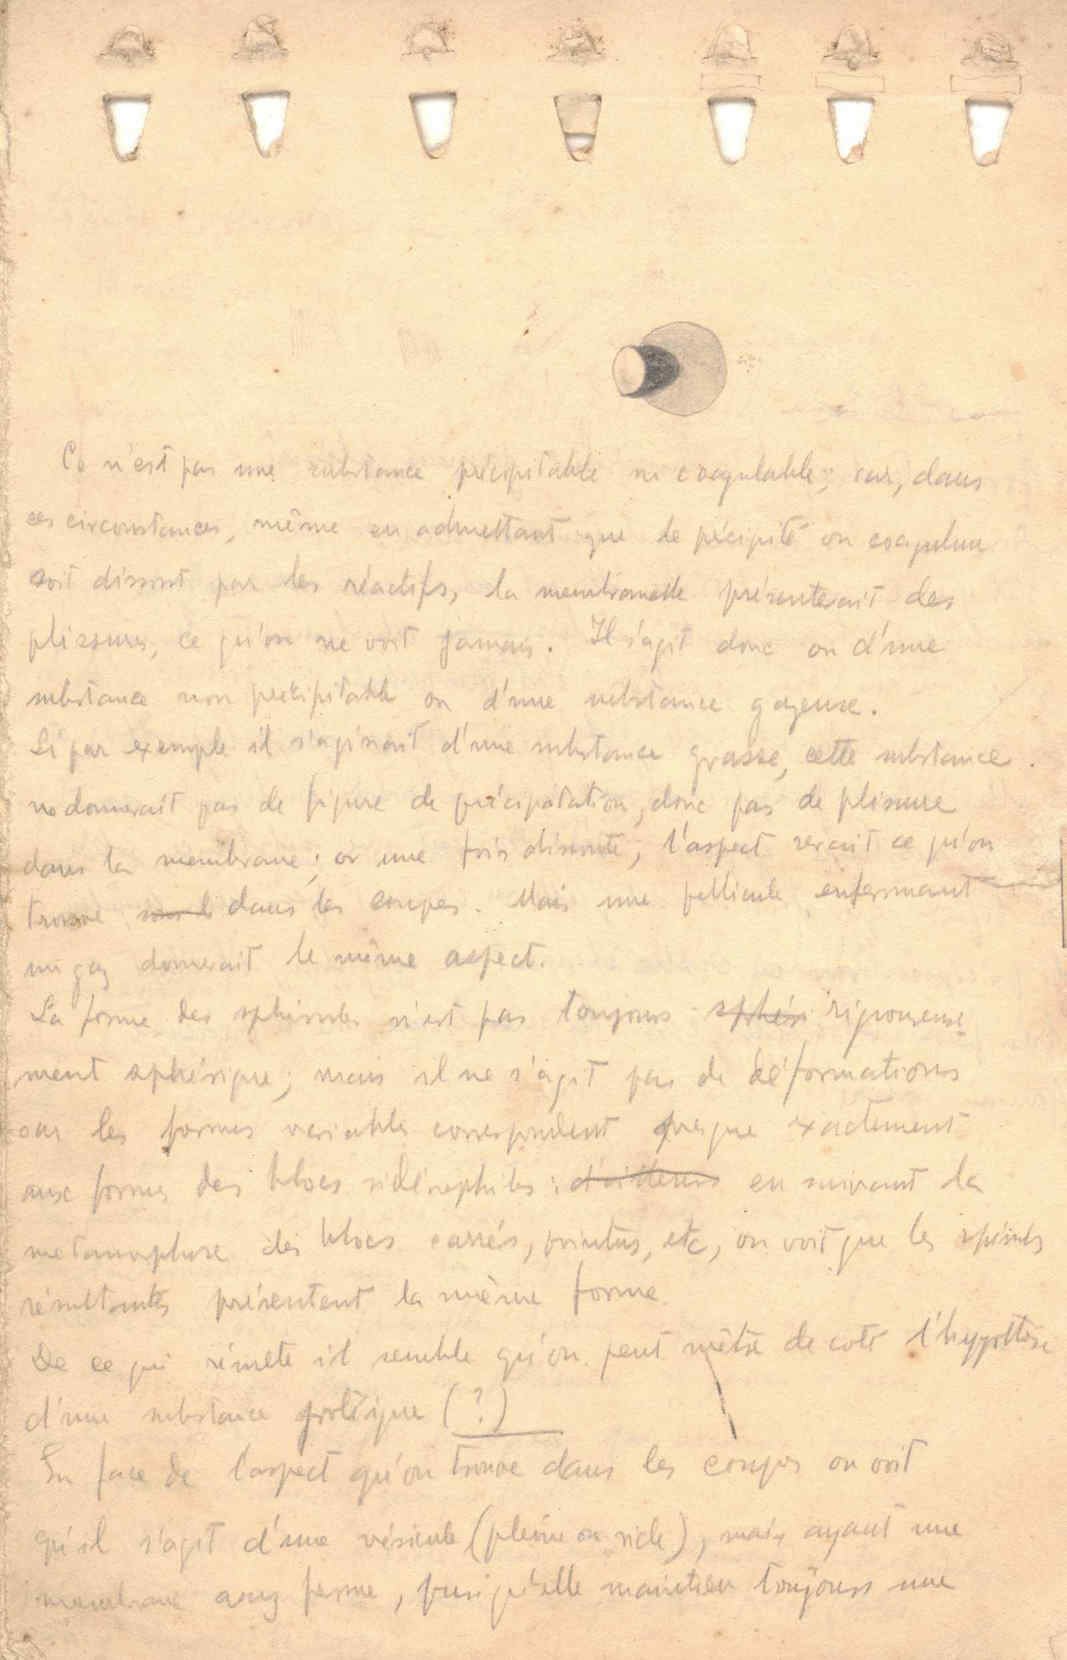 Ce n'est pas une substance précipitable ni coagulable; car, dans
ces circonstances, même en admettant que le précipité ou coagulum
soit dissout par les réactifs, la membranelle présenterait des
plissures, ce qu'on ne voit jamais. Il s'agit donc ou d'une
substance non précipitable ou d'une substance gazeuse.
Si par exemple il s'agissait d'une substance grasse, cette substance
ne donnerait pas de figure de précipitation, donc pas de plissure
dans la membrane; or une fois dissoute, l'aspect serait ce qu'on
trouve dans les coupes. Mais une pellicule enfermant
un gaz donnerait le même aspect.
La forme des sphérules n'est pas toujours sphéri rigoureuse
ment sphérique; mais il ne s'agit pas de déformations
car les formes variables correspondent presque exactement
aux formes des blocs sidérophiles: d'ailleurs en suivant la
metamorphose des blocs carrés, pointus, etc, on voit que les
résultantes présentent la même forme.
De ce qui résulte il semble qu'on peut mètre de coté l'hypothèse
d'une substance (?)
En face de l'aspect qu'on trouve dans les coupes on voit
qu'il s'agit d'une vésicule (pleine ou vide), mais ayant une
membrane assez ferme, puisqu'elle maintien toujours une